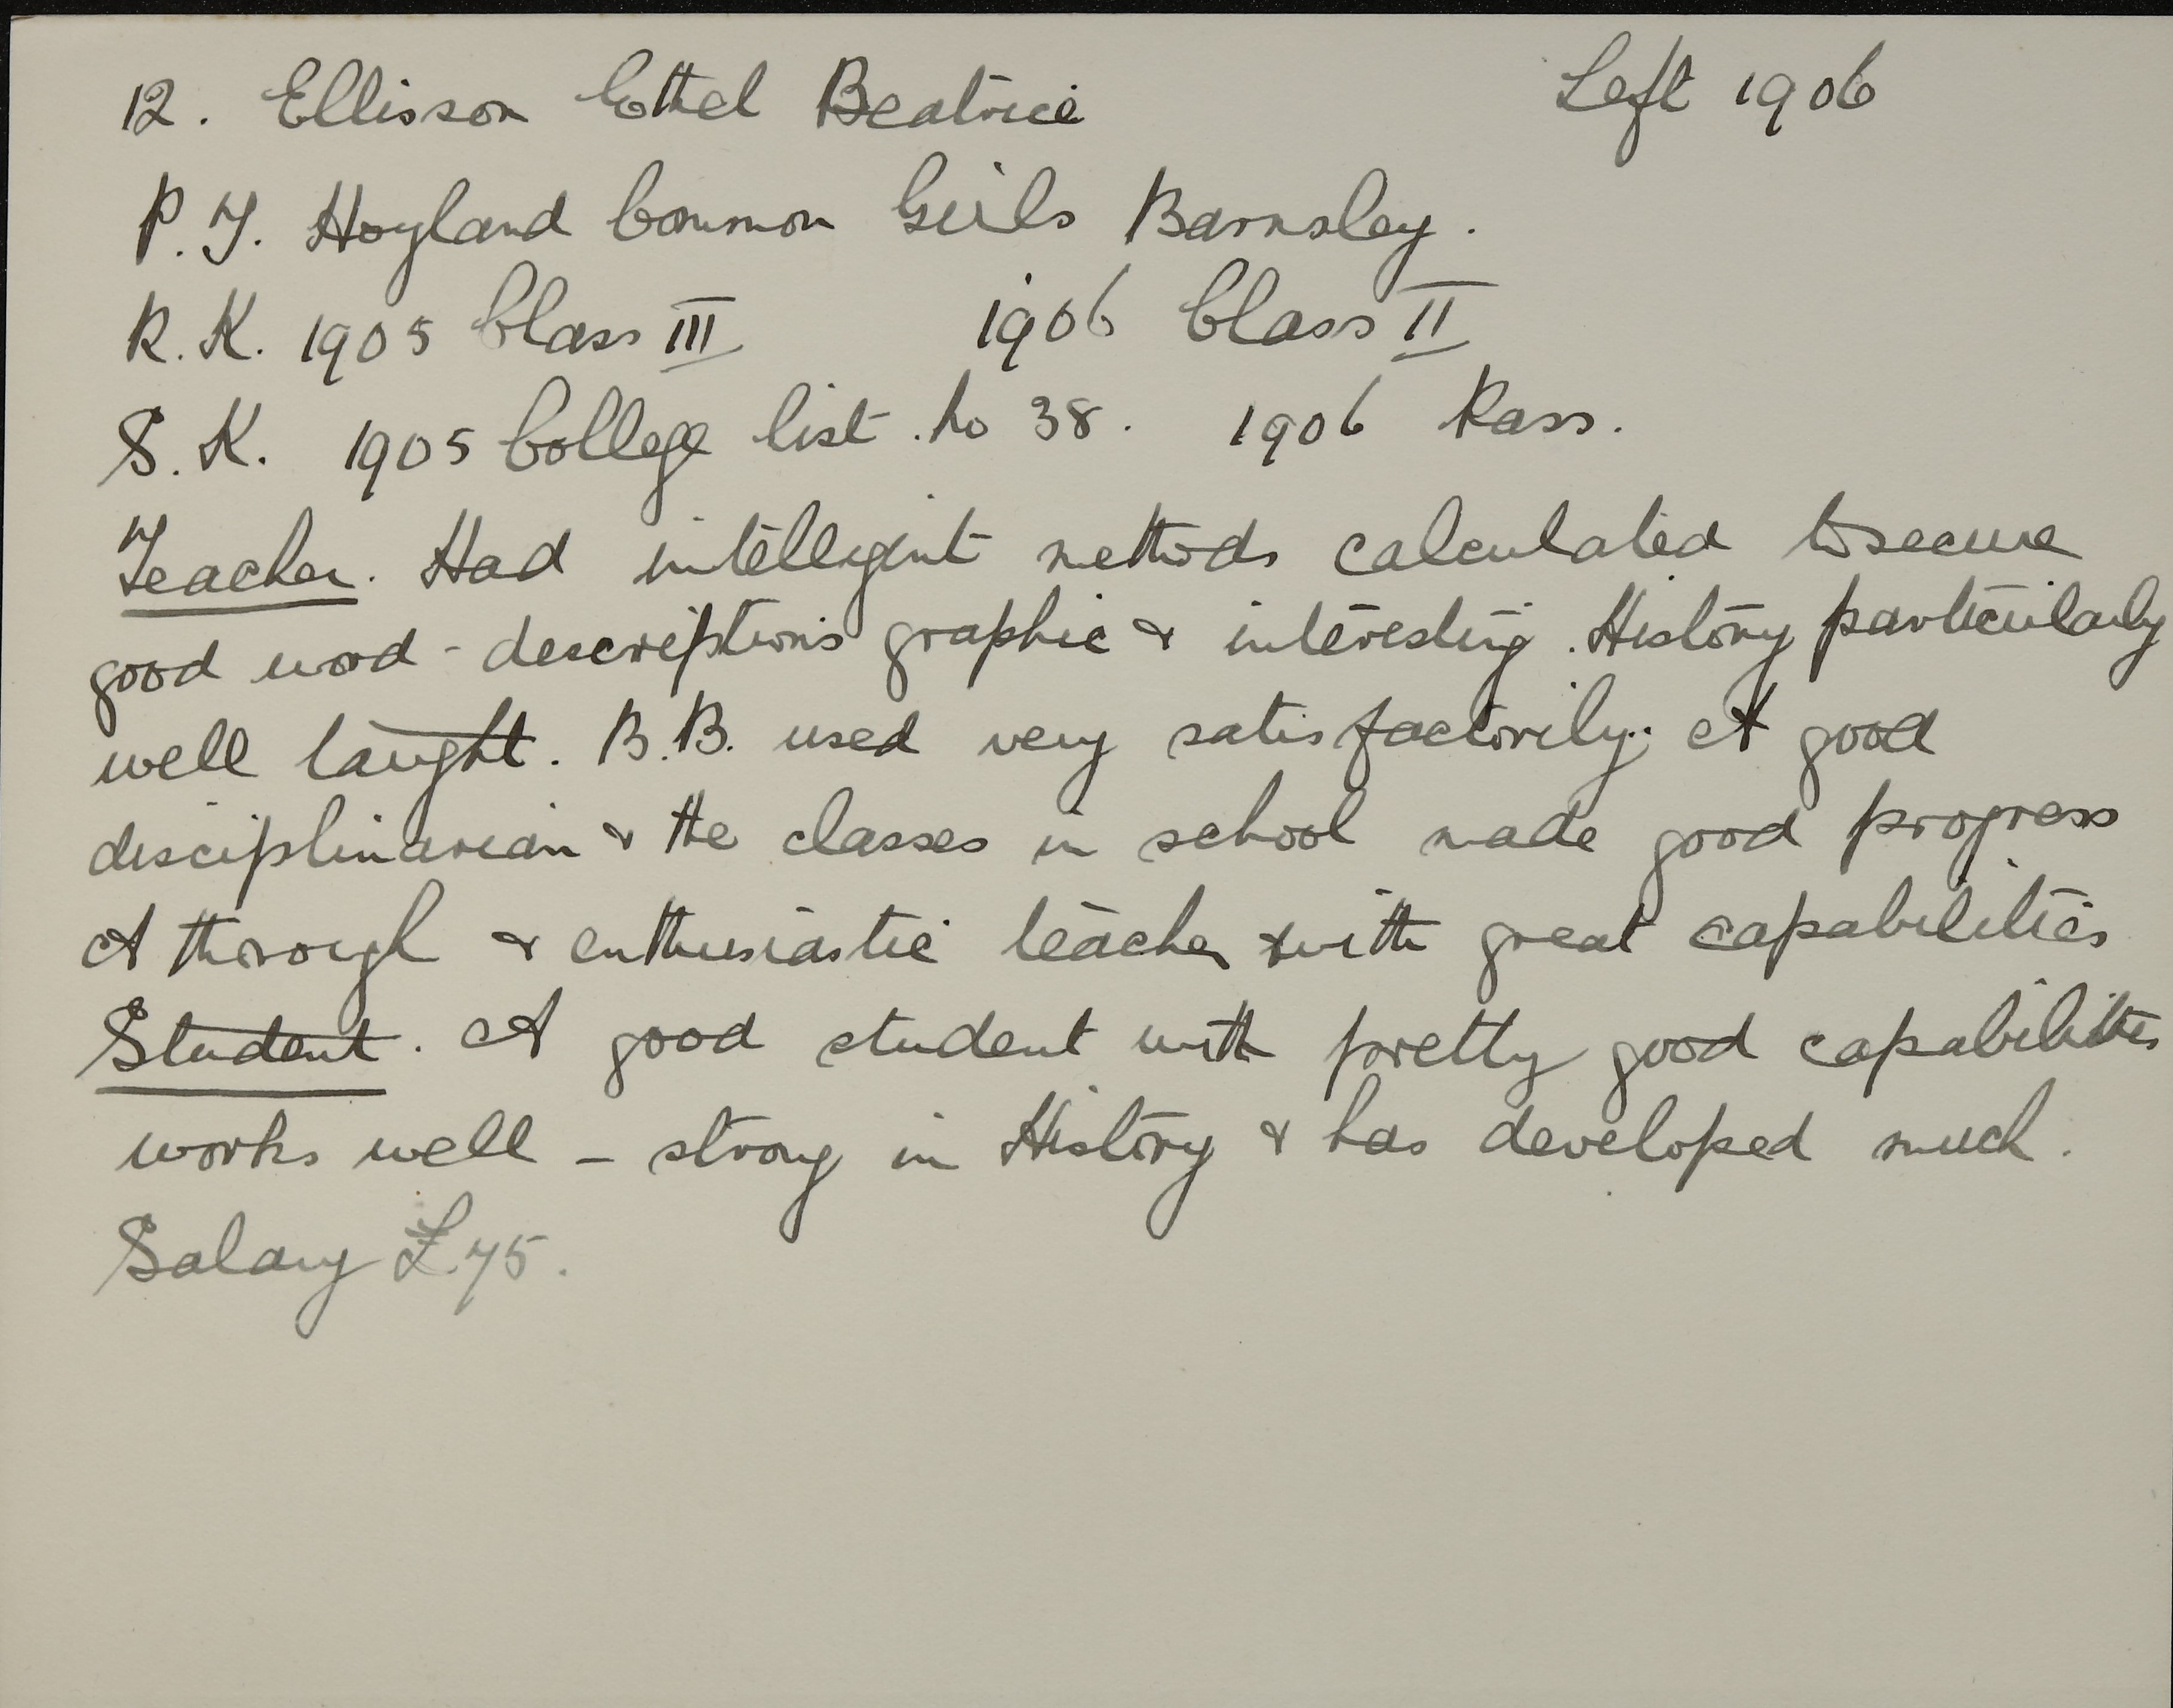 12. Ellisson Ethel Beatrice Left 1906
P.T. Hoyland Common Girls Barnsley.
R.K. 1905 Class III 1906 Class II
S.K. 1905 College list . No 38. 1906 Pass.
Teacher. Had intelligent methods calculated to secure
good word - descriptions graphic & interesting. History particularly
well taught. B.B. used very satisfactorily. A good
disciplinarian & the classes in school made good progress
A thorough & enthusiastic teacher with great capabilities
Student. A good student with pretty good capabilities
works well - strong in History & has developed much.
Salary £75.